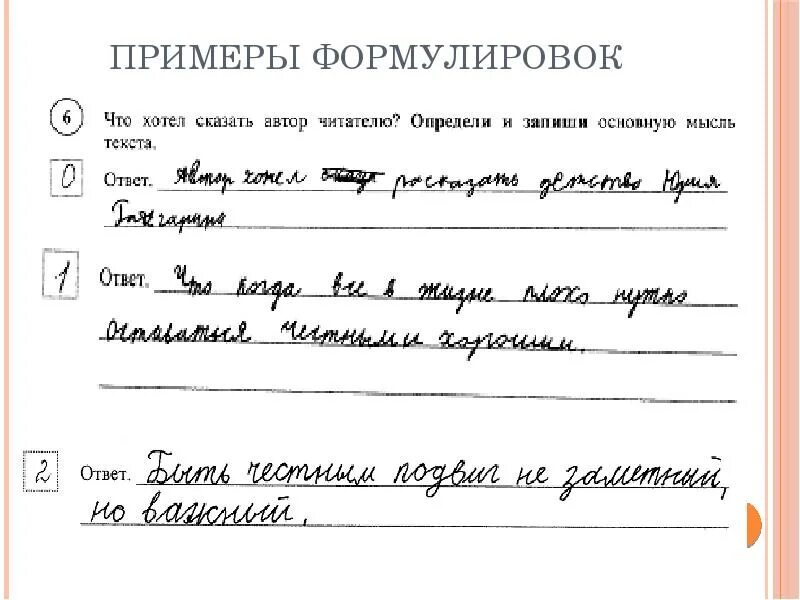 ПРИМЕРЫ ФОРМУЛИРОВОК
6 Что хотел сказать автор читателю? Определи и запиши основную мысль
текста.
0 Ответ. Автор хотел расказать детство Юрия
Гагарина
1 Ответ. Что когда все в жизне плохо нужно
оставаться честными и хорошим.
2 Ответ. Быть честным подвиг не заметный,
но важный.